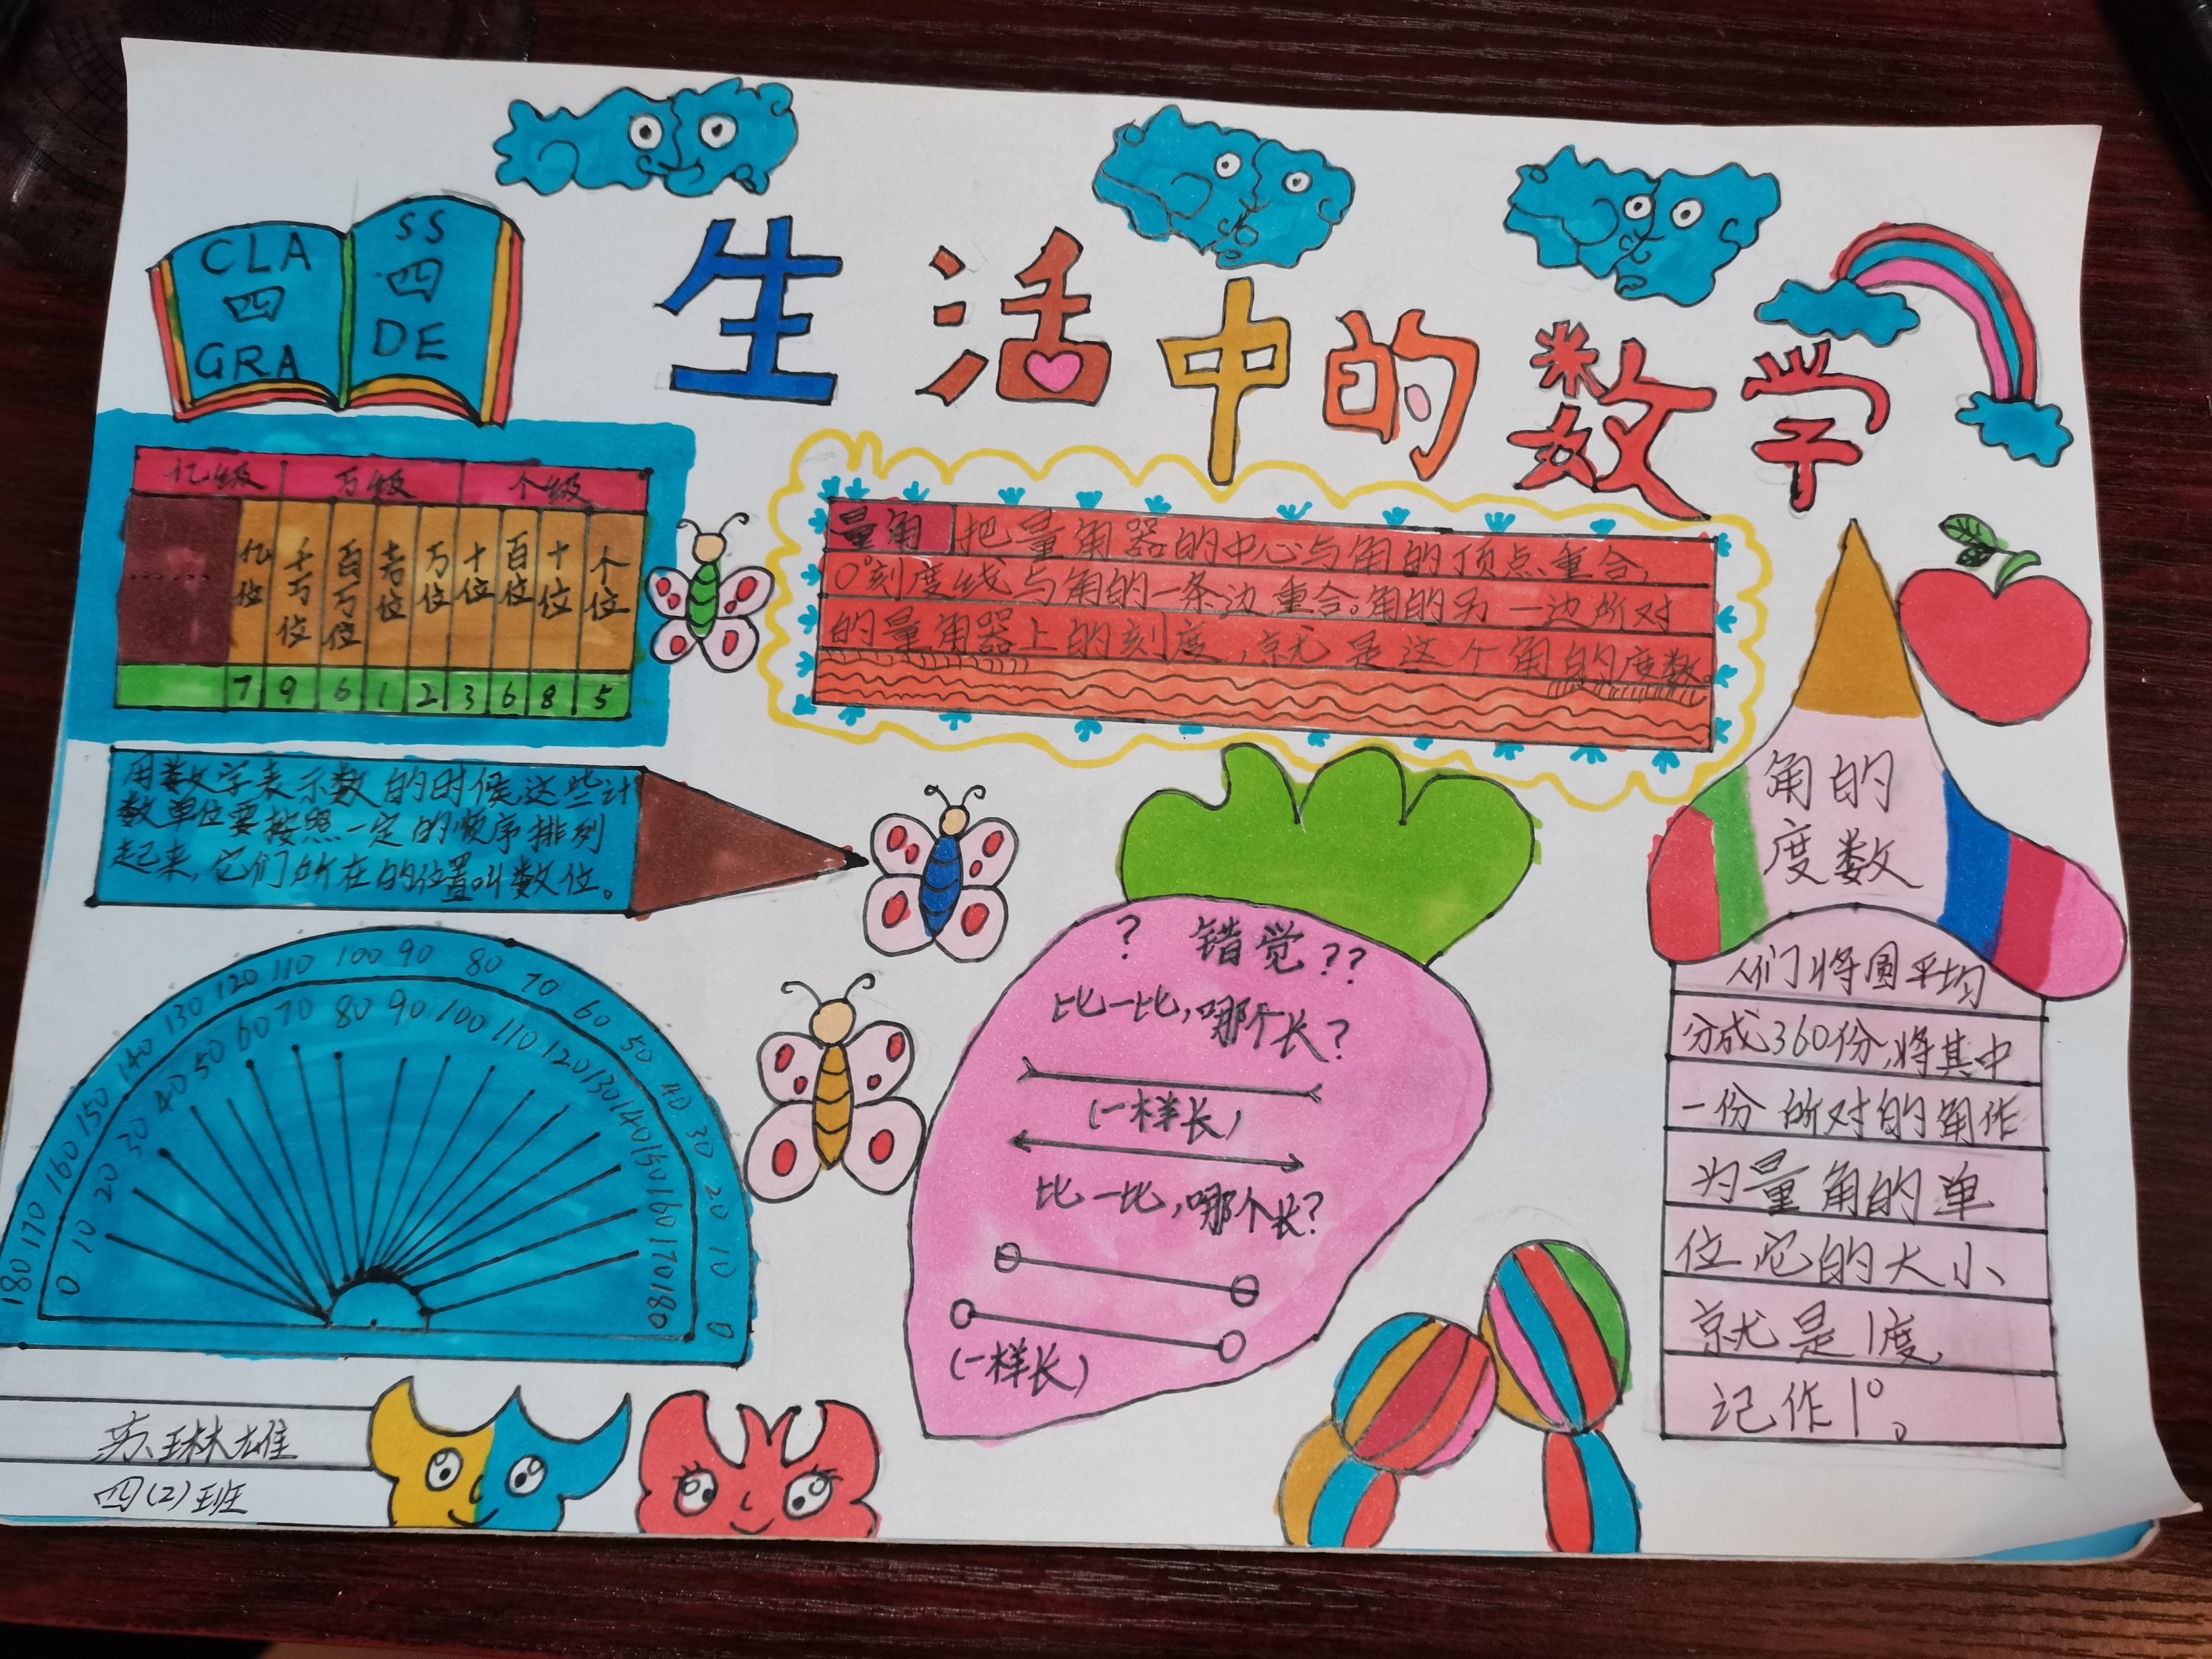 CLA SS
四 四
GRA DE
生活中的数学
亿级 万级 个级
…… 亿位 千万位 百万位 十万位 万位 十位 百位 十位 个位
7 9 6 1 2 3 6 8 5
量角 把量角器的中心与角的顶点重合,
0°刻度线与角的一条边重合。角的另一边所对
的量角器上的刻度,就是这个角的度数。
用数字表示数的时候,这些计
数单位要按照一定的顺序排列
起来,它们所在的位置叫数位。
180 170 160 150 140 130 120 110 100 90 80 70 60 50 40 30 20 10 0
0 10 20 30 40 50 60 70 80 90 100 110 120 130 140 150 160 170 180
? 错觉??
比一比,哪个长?
(一样长)
比一比,哪个长?
(一样长)
角的
度数
人们将圆平均
分成360份,将其中
一份所对的角作
为量角的单
位,它的大小
就是1度,
记作1°。
苏琳雄
四(2)班